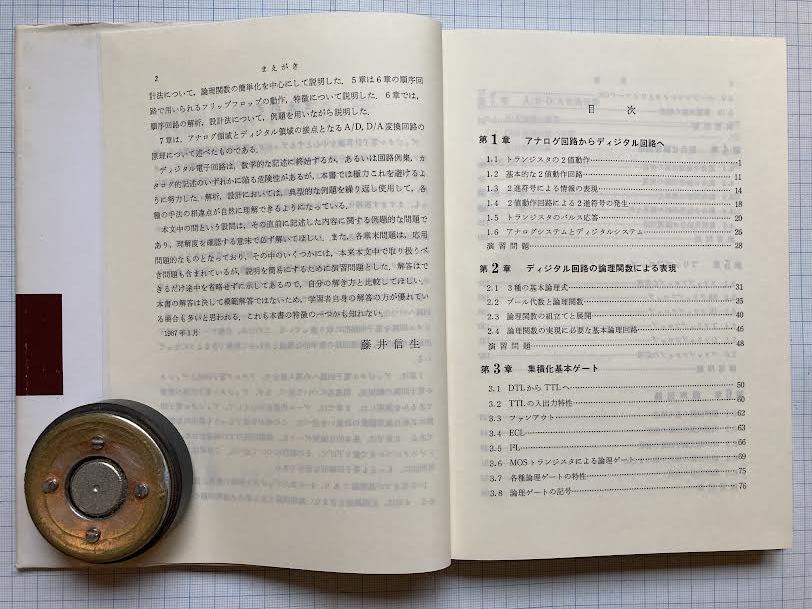 2
まえがき
計法について，論理関数の簡単化を中心にして説明した．5章は6章の順序回
路で用いられるフリップフロップの動作，特徴について説明した．6章では，
順序回路の解析，設計法について，例題を用いながら説明した．
7章は，アナログ領域とディジタル領域の接点となるA/D, D/A変換回路の
原理について述べたものである．
ディジタル電子回路は，数学的な記述に終始するか，あるいは回路例集，カ
タログ的記述のいずれかに陥る危険性があるが，本書では極力これを避けるよ
うに努力した．解析，設計においては，典型的な例題を繰り返し使用して，各
種の手法の相違点が自然に理解できるようになっている．
本文中の問という設問は，その直前に記述した内容に関する例題的な問題で
あり，理解度を確認する意味で必ず解いてほしい．また，各章末問題は，応用
問題的なものとなっており，その中のいくつかには，本来本文中で取り扱うべ
き問題も含まれているが，説明を簡易にするために演習問題とした．解答はで
きるだけ途中を省略せずに示してあるので，自分の解き方と比較してほしい．
本書の解答は決して模範解答ではないため，学習者自身の解答の方が優れてい
る場合も多いと思われる．これも本書の特徴の一つかも知れない．
1987年1月
藤井信生
目次
第1章 アナログ回路からディジタル回路へ
1.1 トランジスタの2値動作 1
1.2 基本的な2値動作回路 11
1.3 2進符号による情報の表現 14
1.4 2値動作回路による2進符号の発生 18
1.5 トランジスタのパルス応答 20
1.6 アナログシステムとディジタルシステム 25
演習問題 28
第2章 ディジタル回路の論理関数による表現
2.1 3種の基本論理式 31
2.2 ブール代数と論理関数 35
2.3 論理関数の組立てと展開 40
2.4 論理関数の実現に必要な基本論理回路 46
演習問題 48
第3章 集積化基本ゲート
3.1 DTLからTTLへ 50
3.2 TTLの入出力特性 60
3.3 ファンアウト 62
3.4 ECL 63
3.5 I²L 66
3.6 MOSトランジスタによる論理ゲート 69
3.7 各種論理ゲートの特性 75
3.8 論理ゲートの記号 76